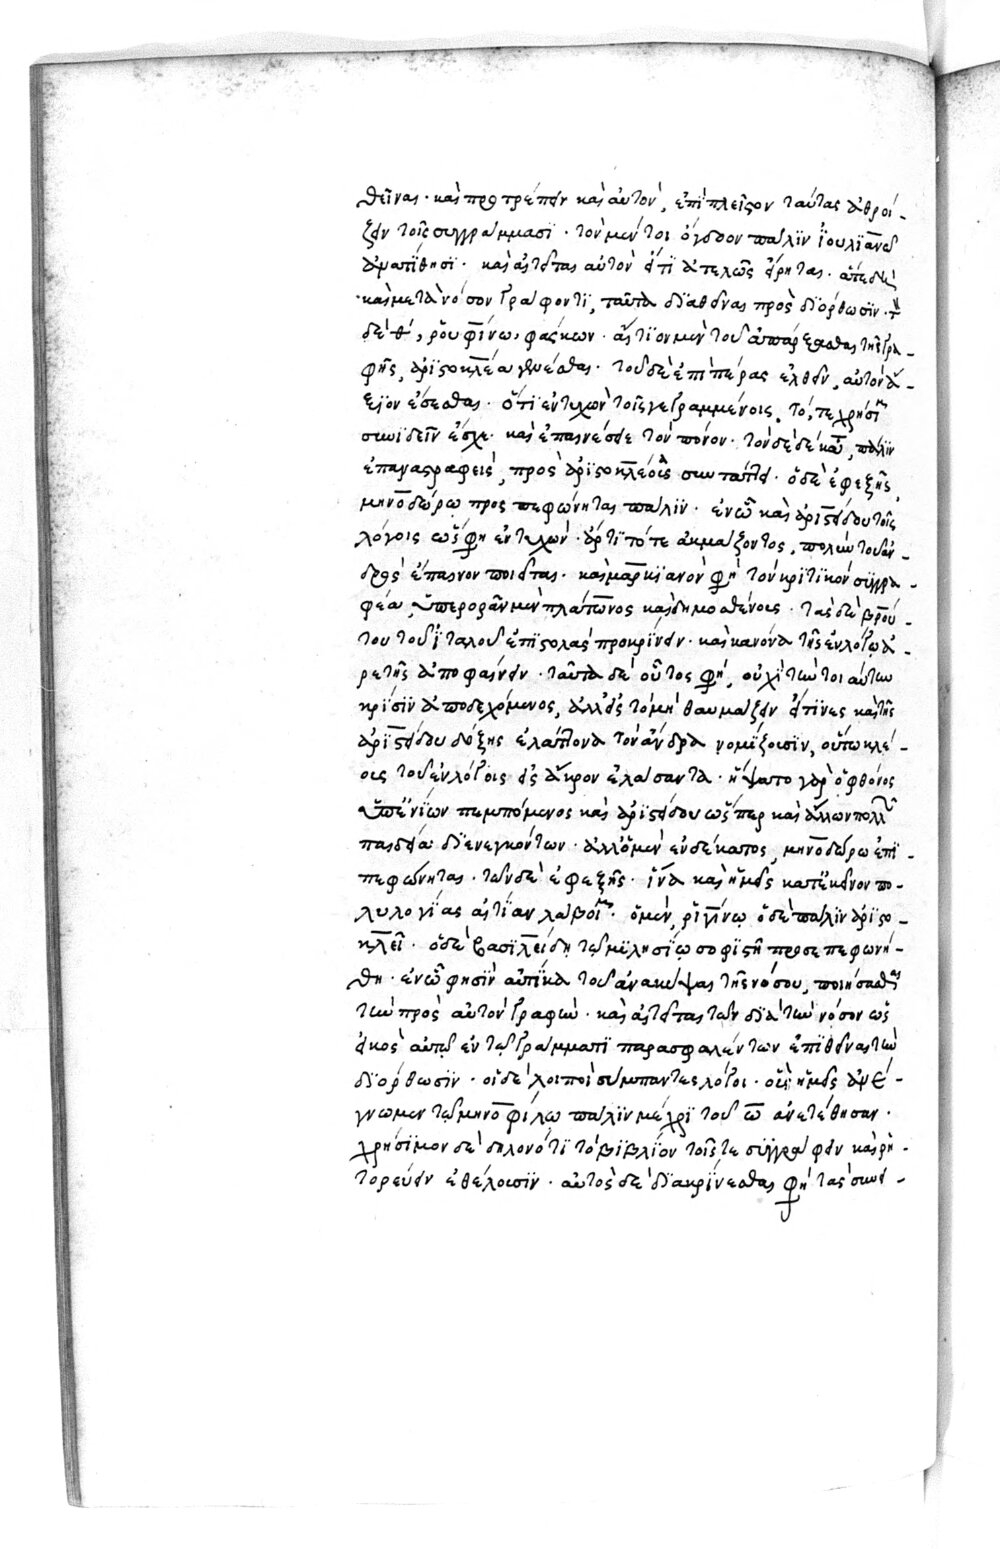 θεῖναι · καὶ προτρέπειν καὶ αὐτὸν, ἐπὶ πλεῖστον ταύτας ἀθροί-
ζειν τοῖς συγγράμμασι · τὸν μέν τοι ὄγδοον πάλιν ἰουλιανῶ
ἀνατίθησι · καὶ αἰτεῖται αὐτὸν ἔτι ἀτελῶς εἴρηται ·
καὶ μετὰ νόσον γράφοντι, ταῦτα δϊαθεῖναι πρὸς δϊόρθωσϊν · τ
δὲ θ', ῥουφίνω, φάσκων · αἴτϊον μὲν τοῦ ἀπάρξασθαι τῆς γρα-
φῆς, ἀριστοκλέα γενέσθαι · τοῦ δὲ ἐπὶ πέρας ἐλθεῖν, αὐτὸν ἄ-
ξϊον ἔσεσθαι · ὅτϊ ἐντυχὼν τοῖς γεγραμμένοις, τό, τε χρήσϊμ
συνιδεῖν ἔσχε · καὶ ἐπαινέσαι τὸν πόνον · τὸν δὲ δέκατ, πάλιν
ἐπαναστραφεὶς, πρὸς ἀριστοκλέους συντάττει · ὁ δὲ ἐφεξῆς
μηνοδώρω προσπεφώνηται πάλϊν · ἐν ὧ καὶ ἀριστείδου τοῖς
λόγοις ὥς φη ἐντυχὼν · ἄρτϊ τότε ἀκμάζοντος, πολὺν τοῦ ἀν-
δρὸς ἔπαινον ποιεῖται · καὶ μαρκιανὸν φη τὸν κρϊτϊκὸν συγγρα-
φέα, ὑπερορᾶν μὲν πλάτωνος καὶ δημοσθένους · τὰς δὲ βρού-
του τοῦ ϊταλοῦ ἐπιστολὰς προκρίνειν · καὶ κανόνα τῆς ἐν λόγω ἀ-
ρετῆς ἀποφαίνειν · ταῦτα δὲ οὗτος φη, οὐχὶ τὴν τοιαύτην
κρίσϊν ἀποδεχόμενος, ἀλλ' εἰς τὸ μὴ θαυμάζειν εἴ τινες καὶ τῆς
ἀριστείδου δόξης ἐλάττονα τὸν ἄνδρα νομίζουσϊν, οὕπω κλέ-
ους τοῦ ἐν λόγοις εἰς ἄκρον ἐλάσαντα · ἥψατο γὰρ ὁ φθόνος
ὑπ' ἐνίων πεμπόμενος καὶ ἀριστείδου ὥσπερ καὶ ἄλλων πολλῶν
παιδεία δϊενεγκόντων · ἀλλ' ὁ μὲν ἐνδέκατος, μηνοδώρω ἐπϊ-
πεφώνηται · τῶν δὲ ἐφεξῆς · ἵνα καὶ ἡμεῖς κατ' ἐκεῖνον πο-
λυλογίας αἰτίαν λάβοιμ · ὁ μὲν, ῥηγίνω ὁ δὲ πάλιν ἀριστο-
κλεῖ · ὁ δὲ βασϊλείδη τῶ μϊλησίω σοφιστῆ προσεπεφωνή-
θη · ἐν ὧ φησϊν αὐτίκα τοῦ ἀνακύψαι τῆς νόσου, ποιήσασθαι
τὴν πρὸς αὐτὸν γραφὴν · καὶ αἰτεῖται τῶν δϊὰ τὴν νόσον ὡς
εἰκὸς αὐτῶ ἐν τῶ γράμματι παρασφαλέντων ἐπϊθεῖναι τὴν
δϊόρθωσϊν · οἱ δὲ λοιποὶ σύμπαντες λόγοι · οὓς ἡμεῖς ἀνέ-
γνωμεν τῶ μηνοφίλω πάλιν μέχρι τοῦ ω ἀνετέθησαν ·
χρήσϊμον δὲ δηλονότϊ τὸ βϊβλίον τοῖς τε συγγράφειν καὶ ῥη-
τορεύειν ἐθέλουσϊν · αὐτὸς δὲ δϊακρίνεσθαι φη τὰς συνει-